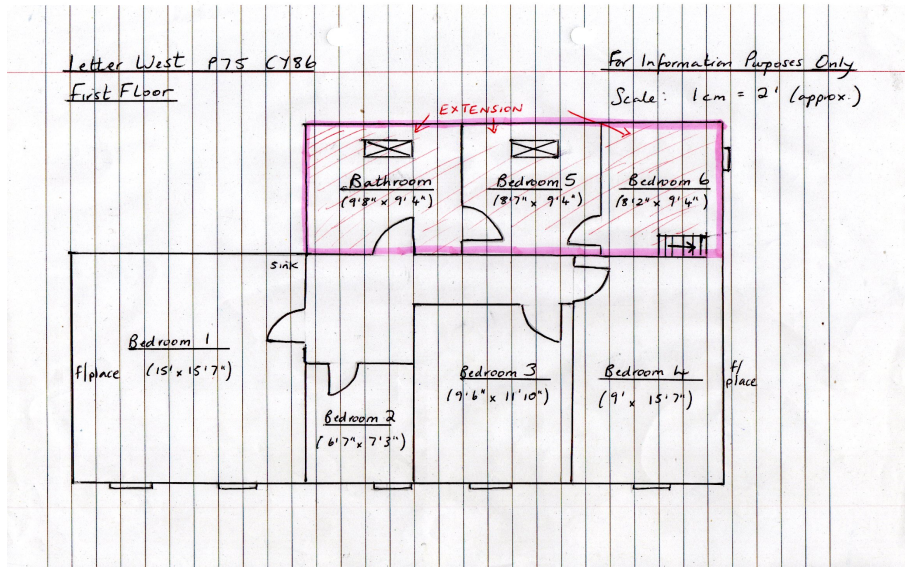 Letter West P75 CY86
For Information Purposes Only
First Floor
Scale: 1cm = 2' (approx.)
EXTENSION
Bathroom
(9'8" x 9'4")
Bedroom 5
(8'7" x 9'4")
Bedroom 6
(8'2" x 9'4")
sink
Bedroom 1
(15' x 15'7")
f/place
Bedroom 2
(6'7" x 7'3")
Bedroom 3
(9'6" x 11'10")
Bedroom 4
(9' x 15'7")
f/
place